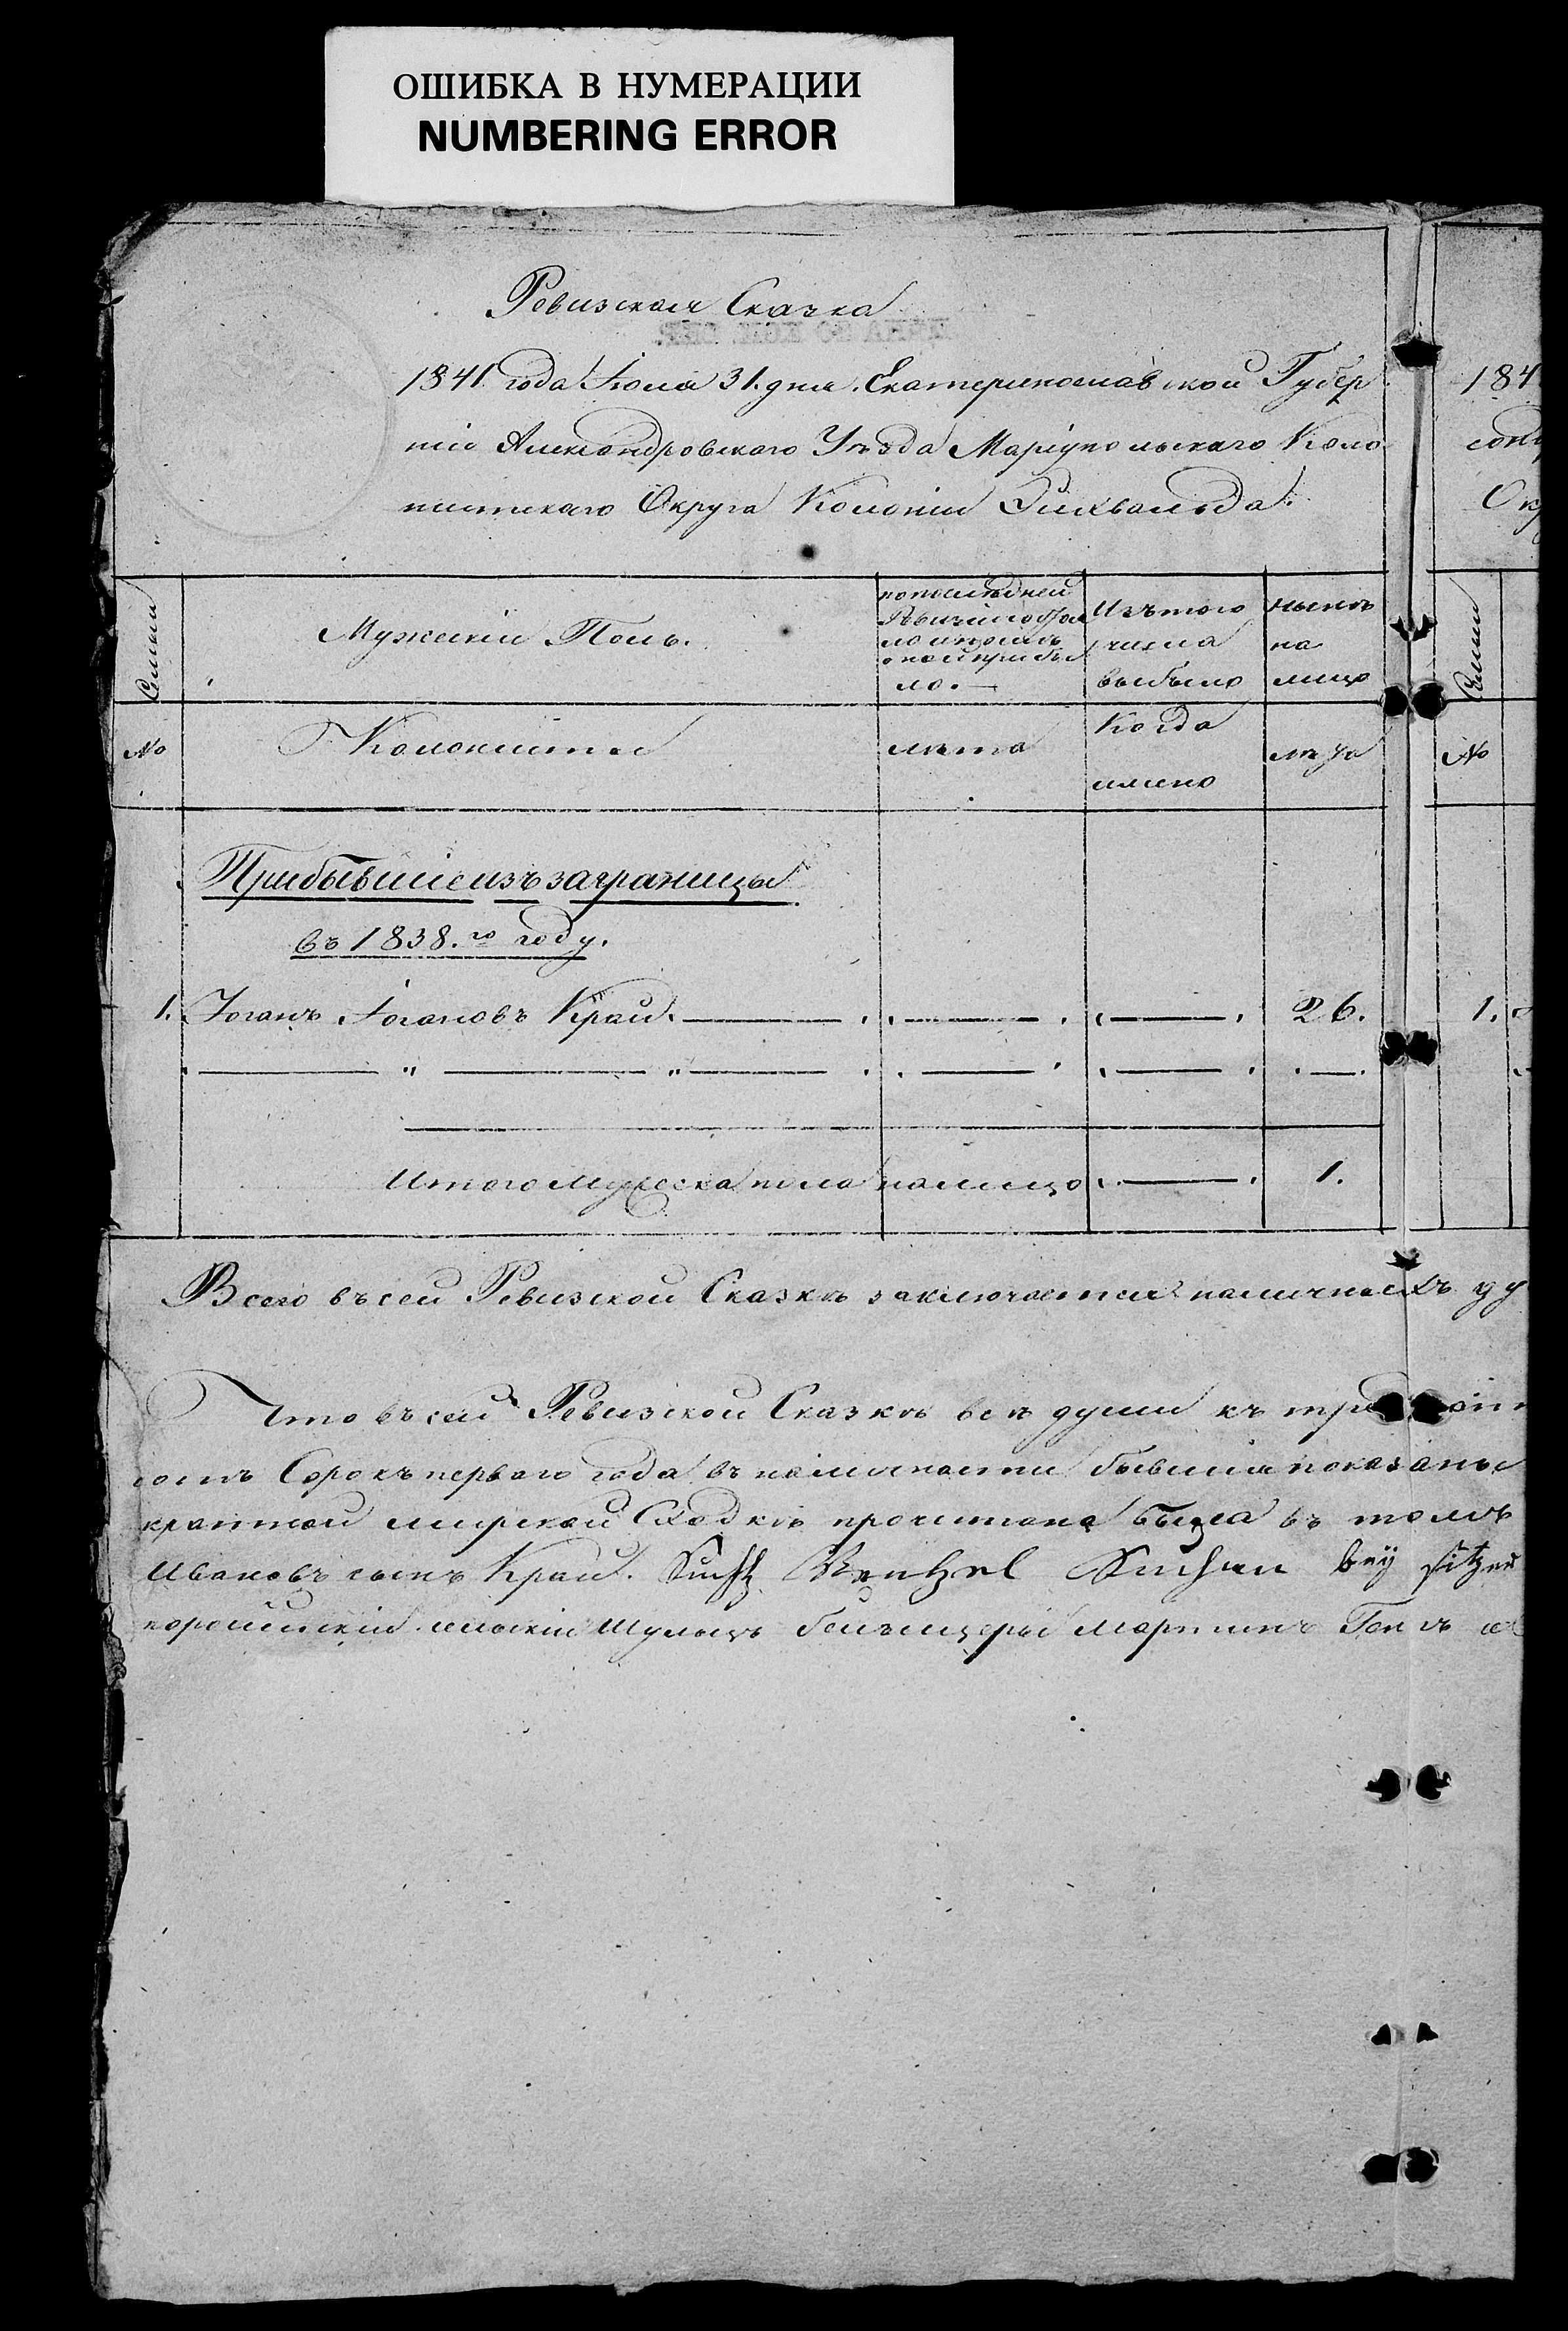 ОШИБКА В НУМЕРАЦИИ
NUMBERING ERROR
Ревизская Сказка
1841 года Іюля 31. дня. Екатеринославской Губер
ніи Александровскаго Уѣзда Маріупольскаго Коло
нистскаго Округа Колоніи Эйхвальда.
184
Ок
Семьи
Мужескій Полъ.
по последней
Изъ того
числа
выбыло
нынѣ
на
лицо
Семьи
№
Колонисты
лѣта
Когда
имено
лѣта
№
Прибывшіе изъ заграницы
въ 1838.го году.
1. Іоганъ Іогановъ Край. 26.
1.
Итого мужеска пола налицо 1.
Всего въ сей Ревизской Сказкѣ заключается наличныхъ ду
Что въ сей Ревизской Сказкѣ всѣ души къ
сотъ Сорокъ перваго года въ наличности бывшія показаны
кратной мирской Сходкѣ прочитана была въ томъ
Ивановъ сынъ Край. bey sitzer
сельскій Шульцъ бейзицеры Мартинъ